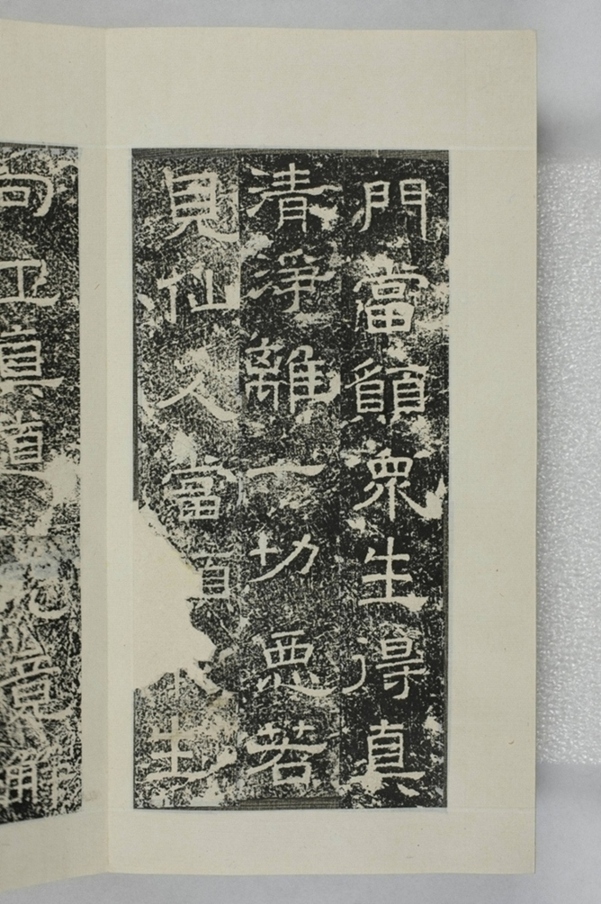 門當願衆生得真
清淨離一切惡若
見仙人當生
向正真道竟